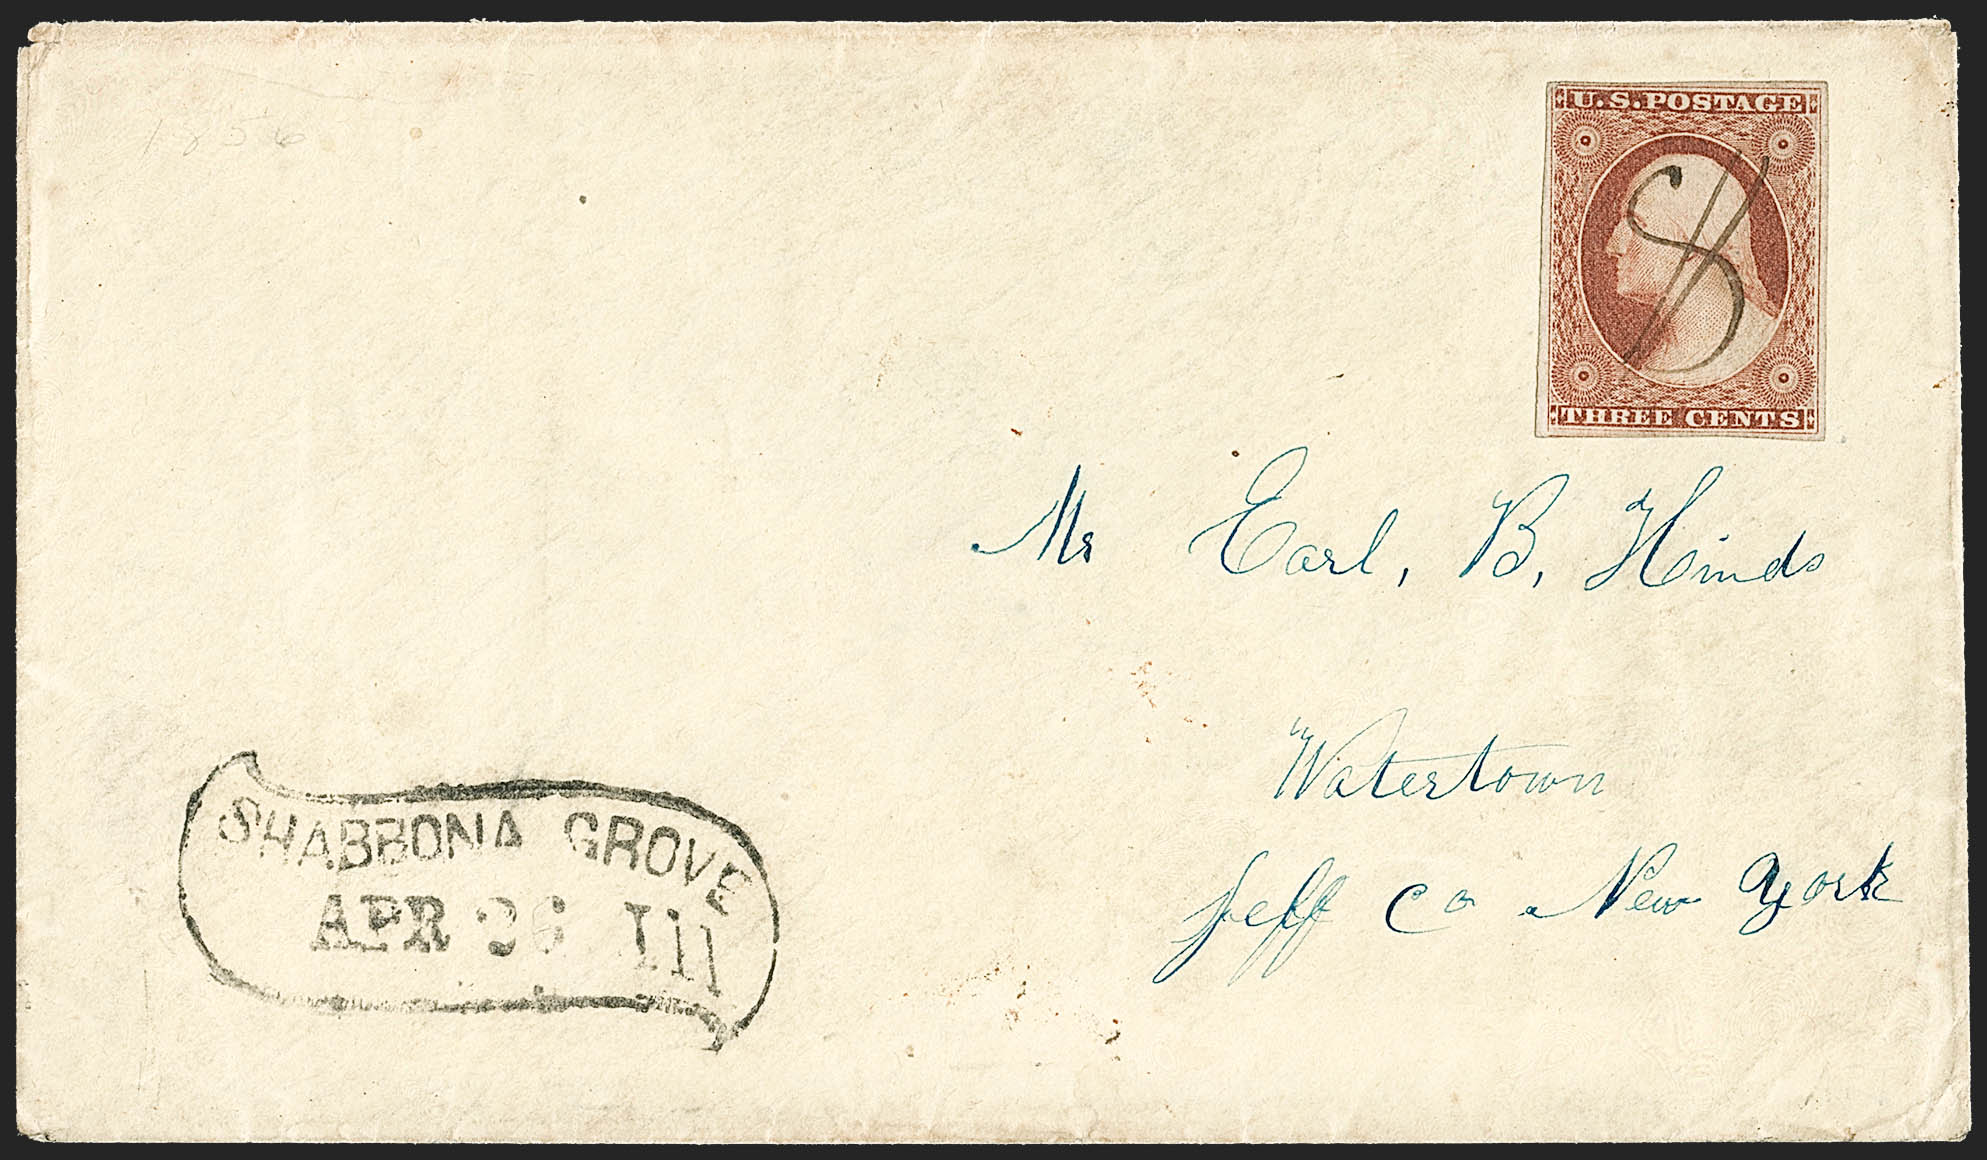 1856
U.S. POSTAGE
THREE CENTS
Mr Earl, B, Hinds
Watertown
Jeff Co New York
SHABBONA GROVE
APR 26 Ill